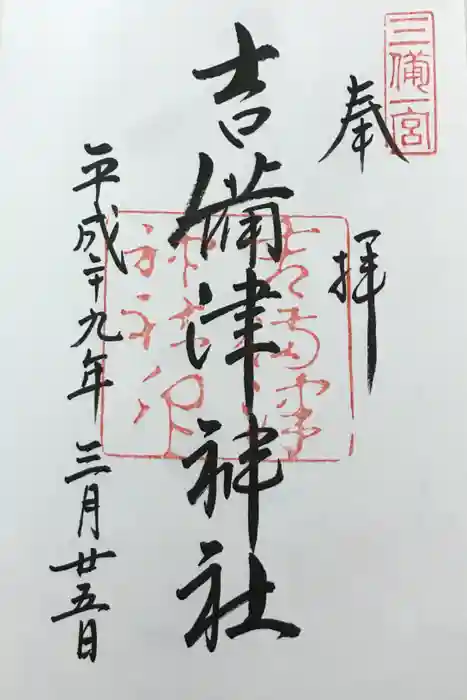 三備一宮
奉拝
吉備津神社
吉備津
神社印
平成二十九年三月廿五日